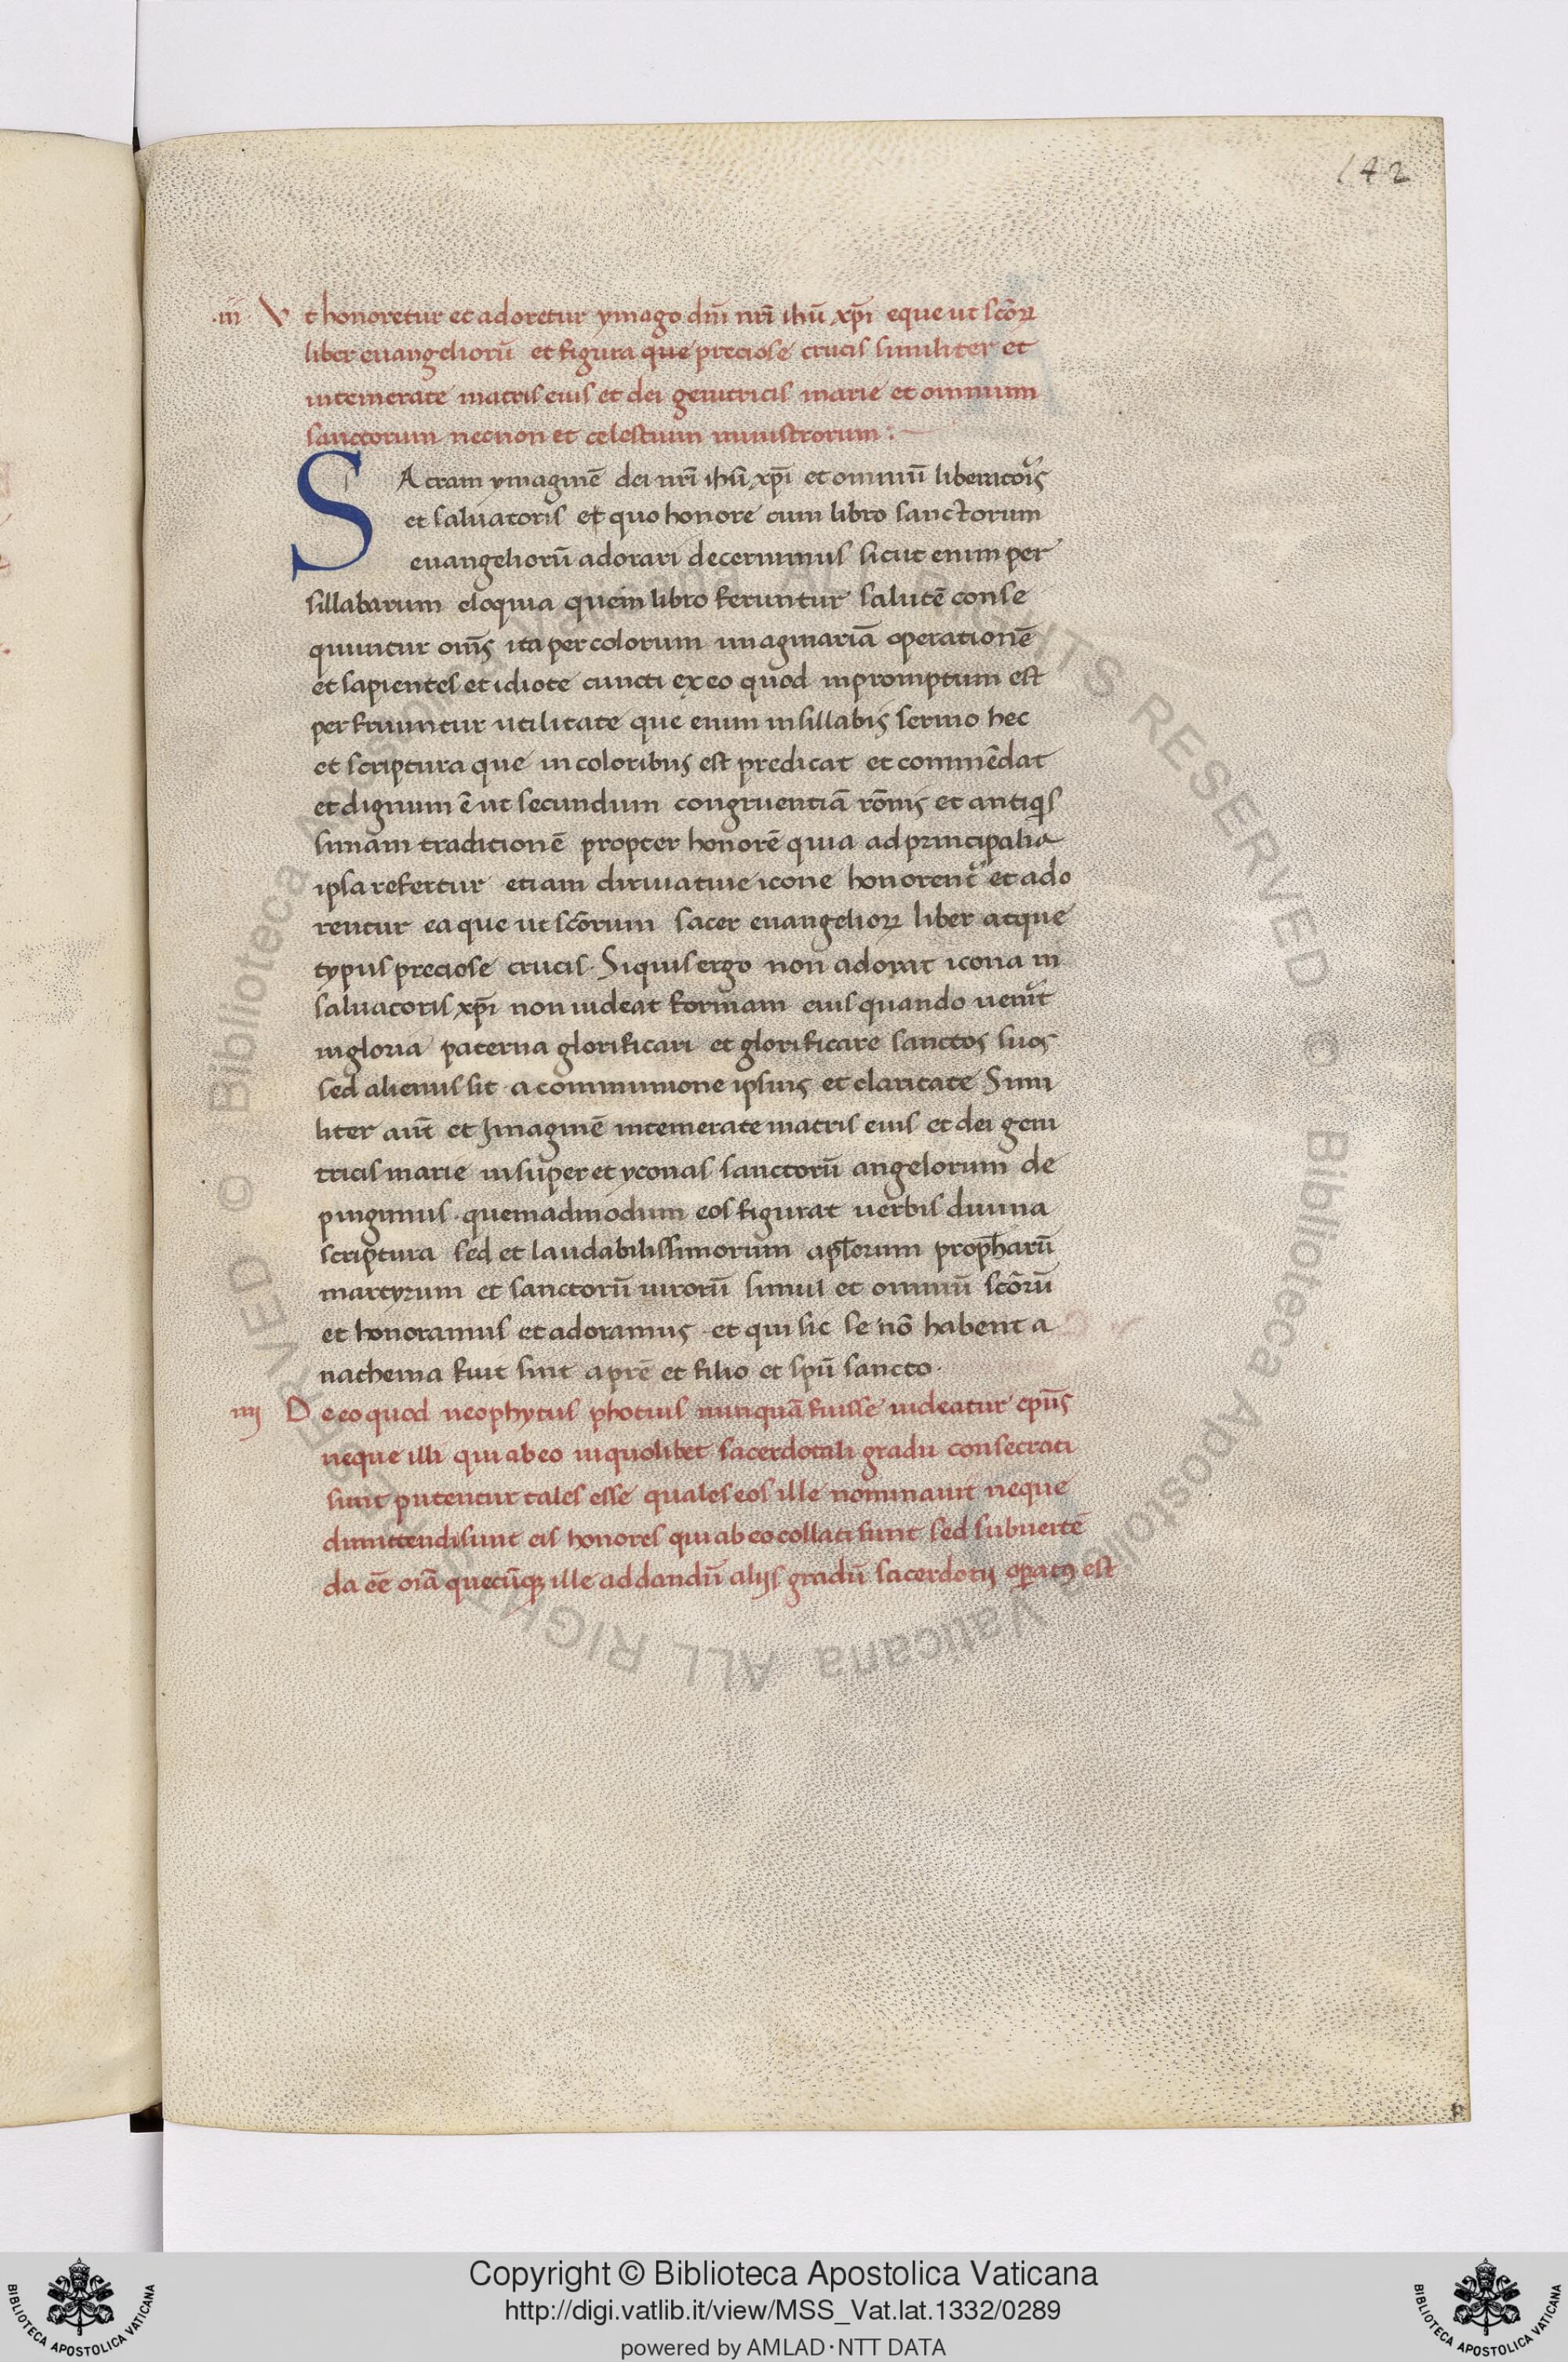 142
.iii. Vt honoretur et adoretur ymago dn̄i nr̄i ihū xp̄i eque ut scōꝝ
liber euangeliorū et figura que preciose crucis similiter et
intemerate matris eius et dei genitricis marie et omnium
sanctorum necnon et celestium ministrorum :
SAcram ymaginē dei nr̄i ihū xp̄i et omniū liberatoris
et saluatoris et quo honore cum libro sanctorum
euangeliorū adorari decernimus sicut enim per
sillabarum eloquia que in libro feruntur salutē conse
quuntur om̄s ita per colorum imaginariā operationē
et sapientes et idiote cuncti ex eo quod inpromptum est
perfruuntur utilitate que enim in sillabis sermo hec
et scriptura que in coloribus est predicat et commēdat
et dignum ē ut secundum congruentiā rōnis et antiqis
simam traditionē propter honorē quia ad principalia
ipsa refertur etiam diriuatiue icone honorent᷑ et ado
rentur ea que ut scōrum sacer euangelioꝝ liber atque
typus preciose crucis. Siquis ergo non adorat icona m
saluatoris xp̄i non uideat formam eius quando ueni᷑t
in gloria paterna glorificari et glorificare sanctos suos
sed alienus sit a communione ipsius et claritate Simi
liter aūt et Imaginē intemerate matris eius et dei geni
tricis marie insuper et yconas sanctorū angelorum de
pingimus. quemadmodum eos figurat uerbis diuina
scriptura sed et laudabilissimorum apl̄orum proph̄arū
martyrum et sanctorū uirorū simul et omniū scōrū
et honoramus et adoramus. et qui sic se nō habent a
nathema fuit sint a prē et filio et spū sancto.
iiii De eo quod neophytus photius nunquā fuisse uideatur ep̄us
neque illi qui ab eo in quolibet sacerdotali gradu consecrati
sunt putentur tales esse quales eos ille nominauit neque
dimittendi sunt eis honores qui ab eo collati sunt sed subuertē
da eē oīa quecūqꝫ ille ad dandū alijs gradū sacerdotij operatus est
Copyright © Biblioteca Apostolica Vaticana
http://digi.vatlib.it/view/MSS_Vat.lat.1332/0289
powered by AMLAD·NTT DATA
BIBLIOTECA APOSTOLICA VATICANA
BIBLIOTECA APOSTOLICA VATICANA
© Biblioteca Apostolica Vaticana ALL RIGHTS RESERVED © Biblioteca Apostolica Vaticana ALL RIGHTS RESERVED